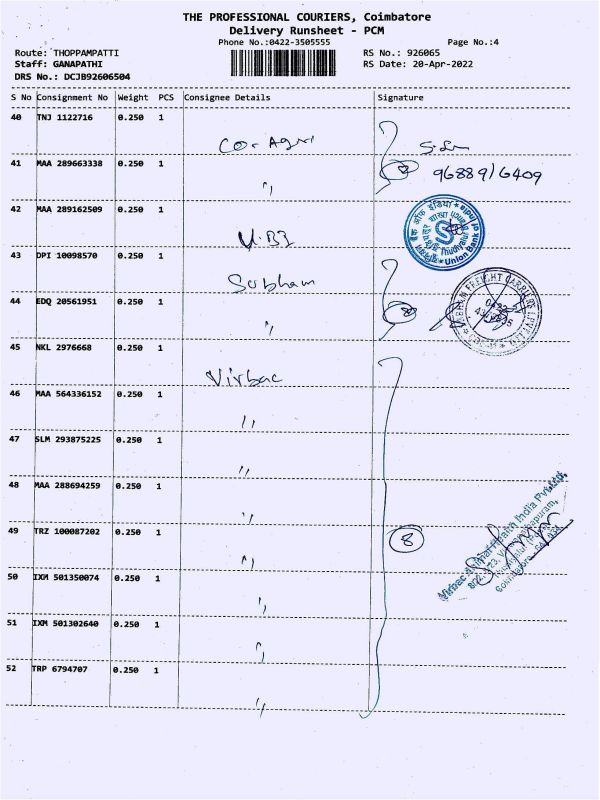 THE PROFESSIONAL COURIERS, Coimbatore
Delivery Runsheet - PCM
Phone No.:0422-3505555 Page No.:4
Route: THOPPAMPATTI RS No.: 926065
Staff: GANAPATHI RS Date: 20-Apr-2022
DRS No.: DCJB92606504
S No Consignment No Weight PCS Consignee Details Signature
40 TNJ 1122716 0.250 1
41 MAA 289663338 0.250 1 "
42 MAA 289162509 0.250 1 U.B.I
Union Bank of India
43 DPI 10098570 0.250 1 Subham
44 EDQ 20561951 0.250 1 "
45 NKL 2976668 0.250 1 Virbac
46 MAA 564336152 0.250 1 "
47 SLM 293875225 0.250 1 "
48 MAA 288694259 0.250 1 "
49 TRZ 100087202 0.250 1 " 8
50 IXM 501350074 0.250 1 "
51 IXM 501302640 0.250 1 "
52 TRP 6794707 0.250 1 "